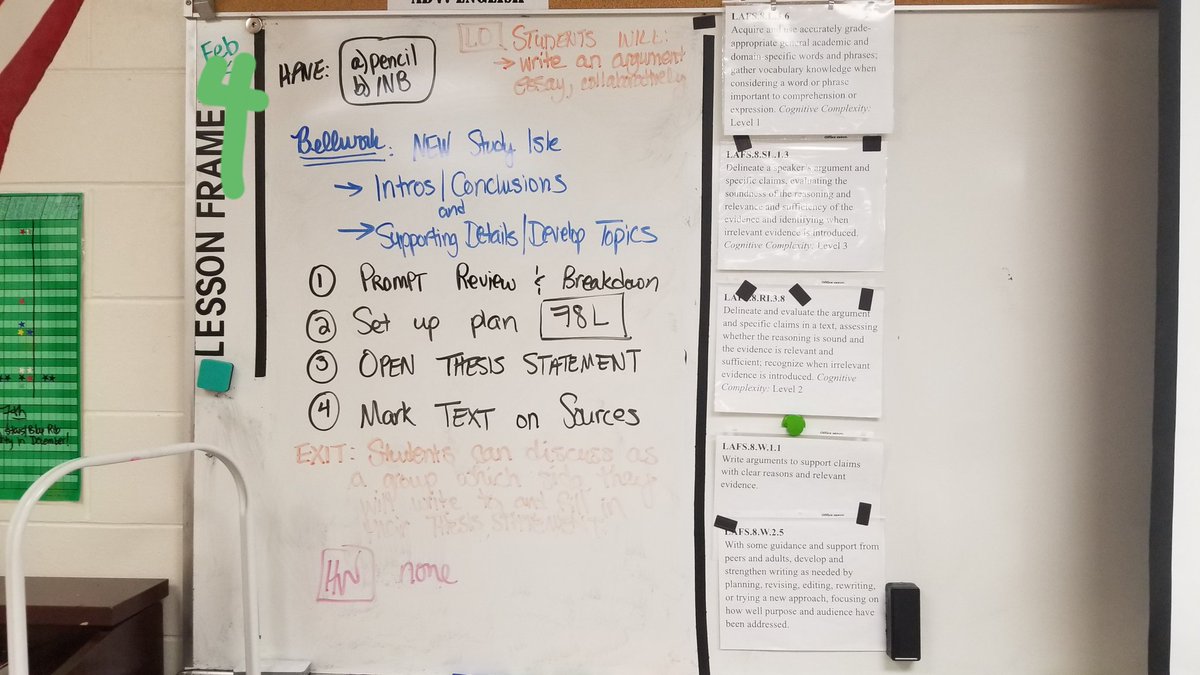 ADV. ENGLISH
LESSON FRAME
Feb
4
HAVE:
a) pencil
b) INB
LO
STUDENTS WILL:
→ write an argument
essay, collaboratively
Bellwork: NEW Study Isle
→ Intros/Conclusions
and
→ Supporting Details/Develop Topics
1 PROMPT Review & Breakdown
2 Set up plan 78L
3 OPEN THESIS STATEMENT
4 Mark TEXT on Sources
EXIT: Students can discuss as
a group which side they
will write to and fill in
their THESIS STATEMENT.
HW none
Acquire and use accurately grade-
appropriate general academic and
domain-specific words and phrases;
gather vocabulary knowledge when
considering a word or phrase
important to comprehension or
expression. Cognitive Complexity:
Level 1
LAFS.8.SL.1.3
Delineate a speaker's argument and
specific claims, evaluating the
soundness of the reasoning and
relevance and sufficiency of the
evidence and identifying when
irrelevant evidence is introduced.
Cognitive Complexity: Level 3
LAFS.8.RI.3.8
Delineate and evaluate the argument
and specific claims in a text, assessing
whether the reasoning is sound and
the evidence is relevant and
sufficient; recognize when irrelevant
evidence is introduced. Cognitive
Complexity: Level 2
LAFS.8.W.1.1
Write arguments to support claims
with clear reasons and relevant
evidence.
LAFS.8.W.2.5
With some guidance and support from
peers and adults, develop and
strengthen writing as needed by
planning, revising, editing, rewriting,
or trying a new approach, focusing on
how well purpose and audience have
been addressed.
7th
in December!